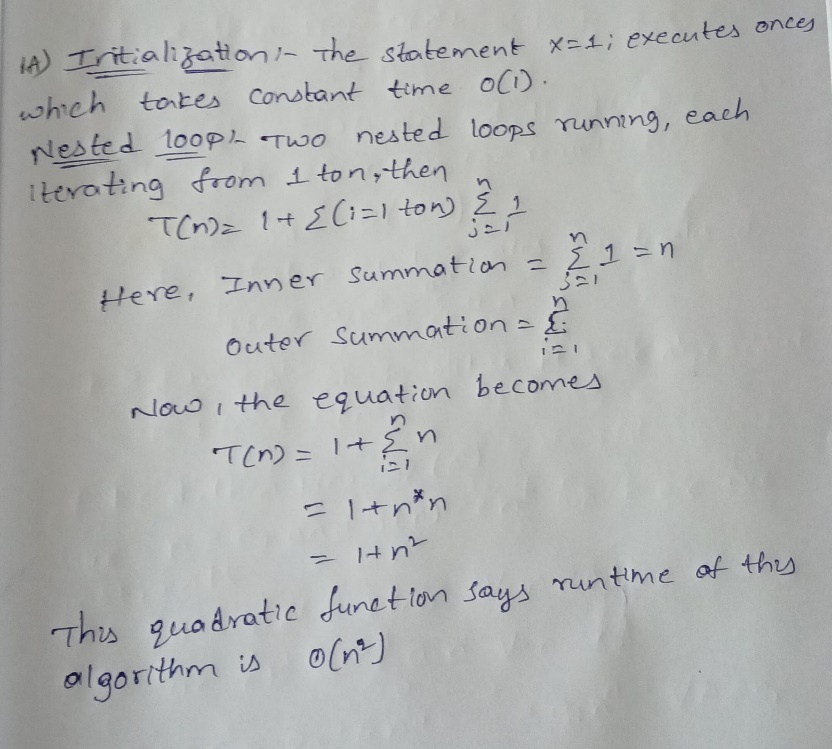 1A) Initialization:- The statement x=1; executes onces
which takes constant time O(1).
Nested loop:- Two nested loops running, each
iterating from 1 to n, then
T(n) = 1 + Σ(i=1 to n) Σ_{j=1}^{n} 1
Here, Inner summation = Σ_{j=1}^{n} 1 = n
Outer summation = Σ_{i=1}^{n}
Now, the equation becomes
T(n) = 1 + Σ_{i=1}^{n} n
= 1 + n*n
= 1 + n²
This quadratic function says runtime of this
algorithm is O(n²)